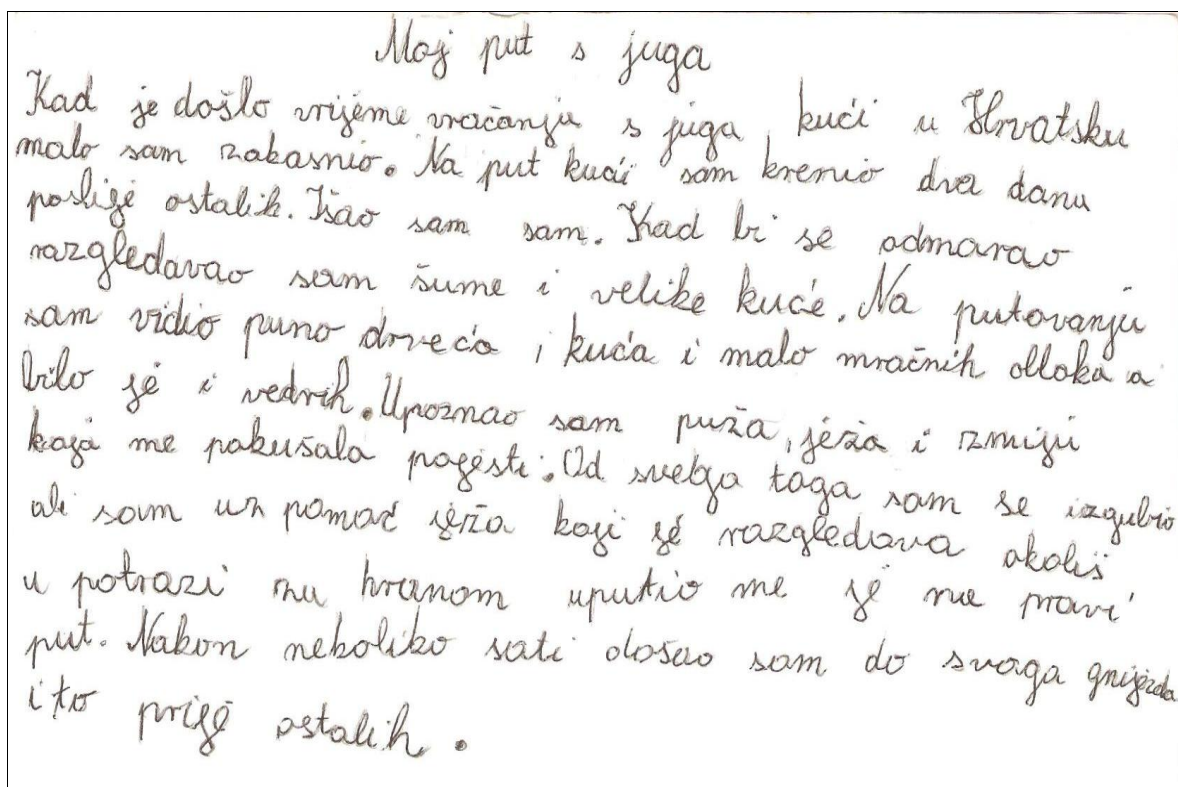 Moj put s juga
Kad je došlo vrijeme vraćanja s juga, kući u Hrvatsku
malo sam zakasnio. Na put kući sam krenio dva dana
poslije ostalih. Išao sam sam. Kad bi se odmarao
razgledavao sam šume i velike kuće. Na putovanju
sam vidio puno drveća i kuća i malo mračnih obloka a
bilo je i vedrih. Upoznao sam puža, ježa i zmiju
koja me pokušala pojesti. Od svega toga sam se izgubio
ali sam uz pomoć ježa koji je razgledava okoliš
u potrazi za hranom uputio me je na pravi
put. Nakon nekoliko sati došao sam do svoga gnijezda
i to prije ostalih.